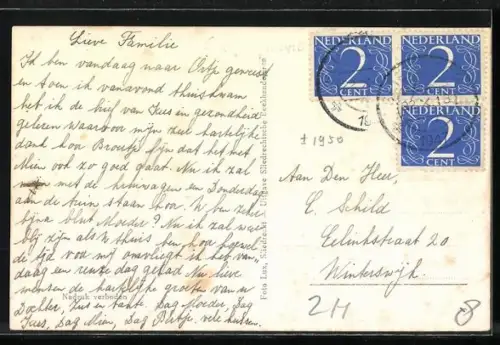 Lieve Familie
Ik ben vandaag naar Ortje geweest
en toen ik vanavond thuiskwam
heb ik de brief van Zus en gezondheid
gelezen waarvoor mijn zeer hartelijke
dank hoor Broertje fijn dat het met
Mien ook zo goed gaat. Nu ik zal
mijn met de en Donderdag
aan de trein staan hoor. U ben zeker
bijna blut Moeder? Nu ik zal wat
blij zijn als 'k thuis ben hoor hoewel
de tijd voor mij omvliegt ik heb van-
daag een reuze dag gehad Nu lieve
mensen de hartelijke groeten van u
Dochter, zus en tante. Dag Moeder, Dag
Zus, Dag Mien, Dag Bertje. vele kussen.
Nadruk verboden
Foto Lux, Sliedrecht Uitgave Sliedrechtsche Boekhandel
NEDERLAND
2
CENT
NEDERLAND
2
CENT
NEDERLAND
2
CENT
± 1950
Aan Den Heer,
C. Schild
Eelinkstraat 20
Winterswijk.
2H
8